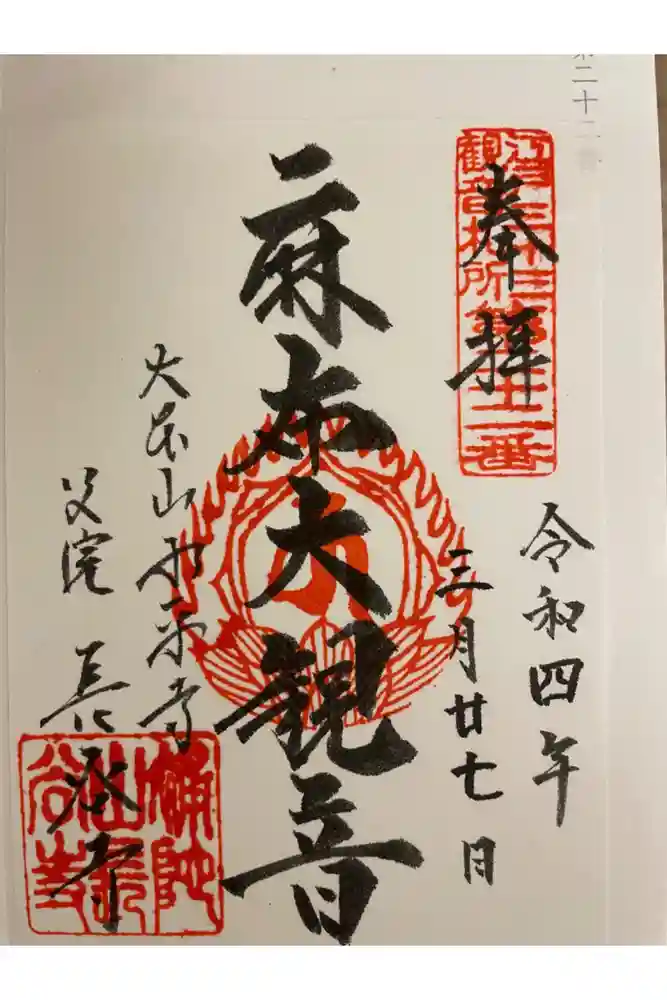 第二十二番
奉拝
江戸三十三
観音札所第二十二番
令和四年
三月廿七日
麻布大観音
大本山永平寺
別院 長谷寺
補陀
山長
谷寺